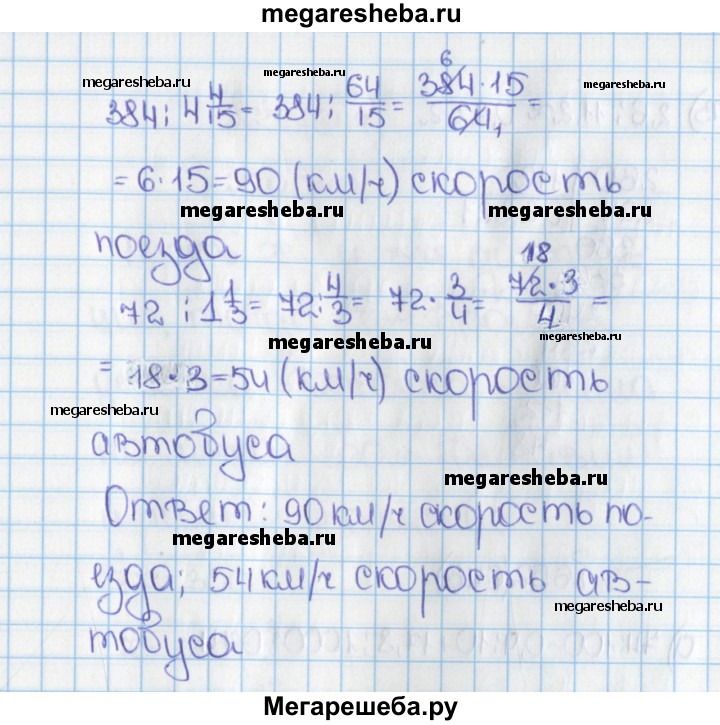 megaresheba.ru
megaresheba.ru megaresheba.ru megaresheba.ru
384 : 4 4/15 = 384 : 64/15 = 6 384 · 15 / 64 1 =
= 6 · 15 = 90 (км/ч) скорость
megaresheba.ru megaresheba.ru
поезда
72 : 1 1/3 = 72 : 4/3 = 72 · 3/4 = 18 72 · 3 / 4 =
megaresheba.ru megaresheba.ru
= 18 · 3 = 54 (км/ч) скорость
megaresheba.ru
автобуса
megaresheba.ru
Ответ: 90 км/ч скорость по-
megaresheba.ru
езда; 54 км/ч скорость ав-
megaresheba.ru
тобуса
megaresheba.ru
Мегарешеба.ру